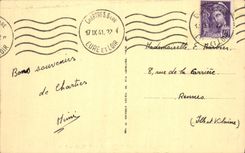 CHARTRES GARE
17 IX 41
EURE ET LOIR
Bons souvenirs
de Chartres
Mimi
Mademoiselle F.
8, rue de la Carrière
Rennes
(Ille et Vilaine)